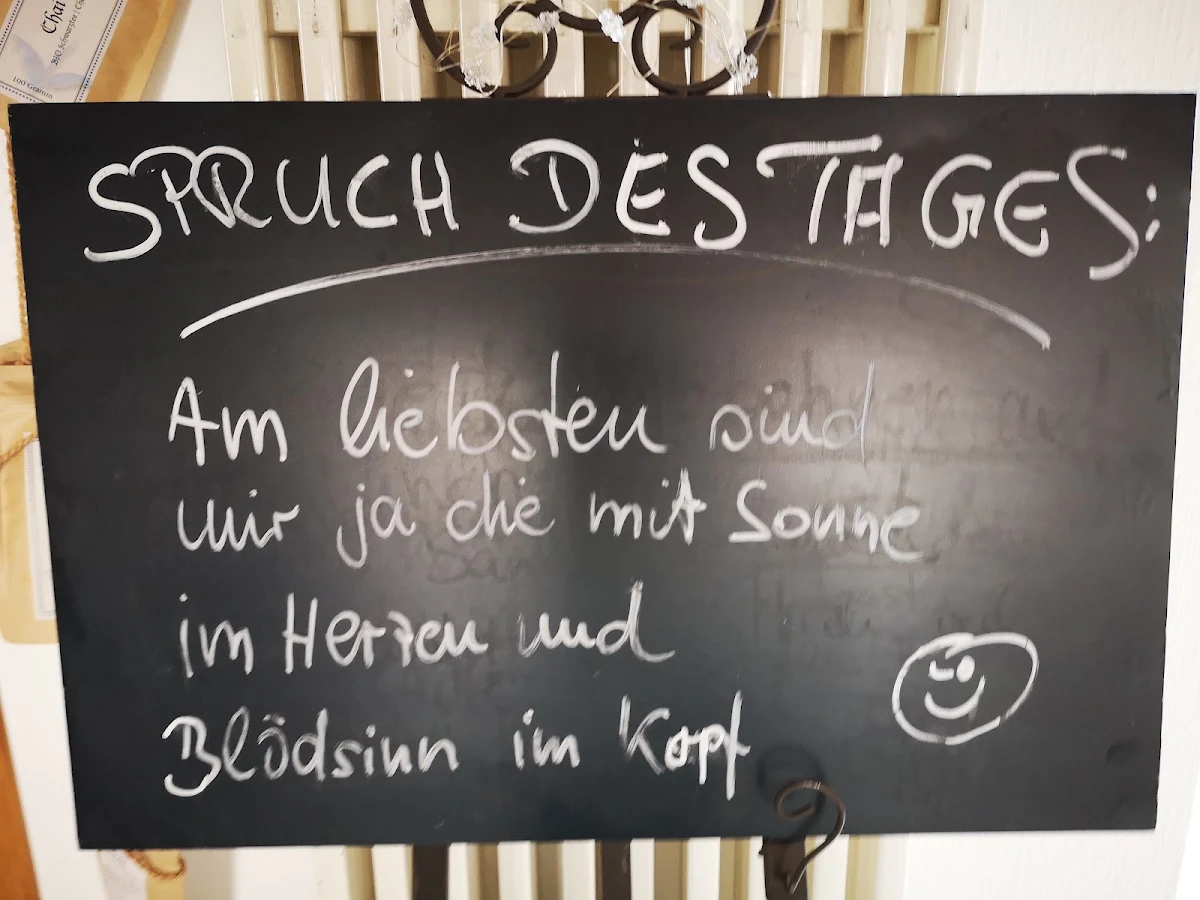 Chai
100 Gramm
SPRUCH DES TAGES:
Am liebsten sind
mir ja die mit Sonne
im Herzen und
Blödsinn im Kopf